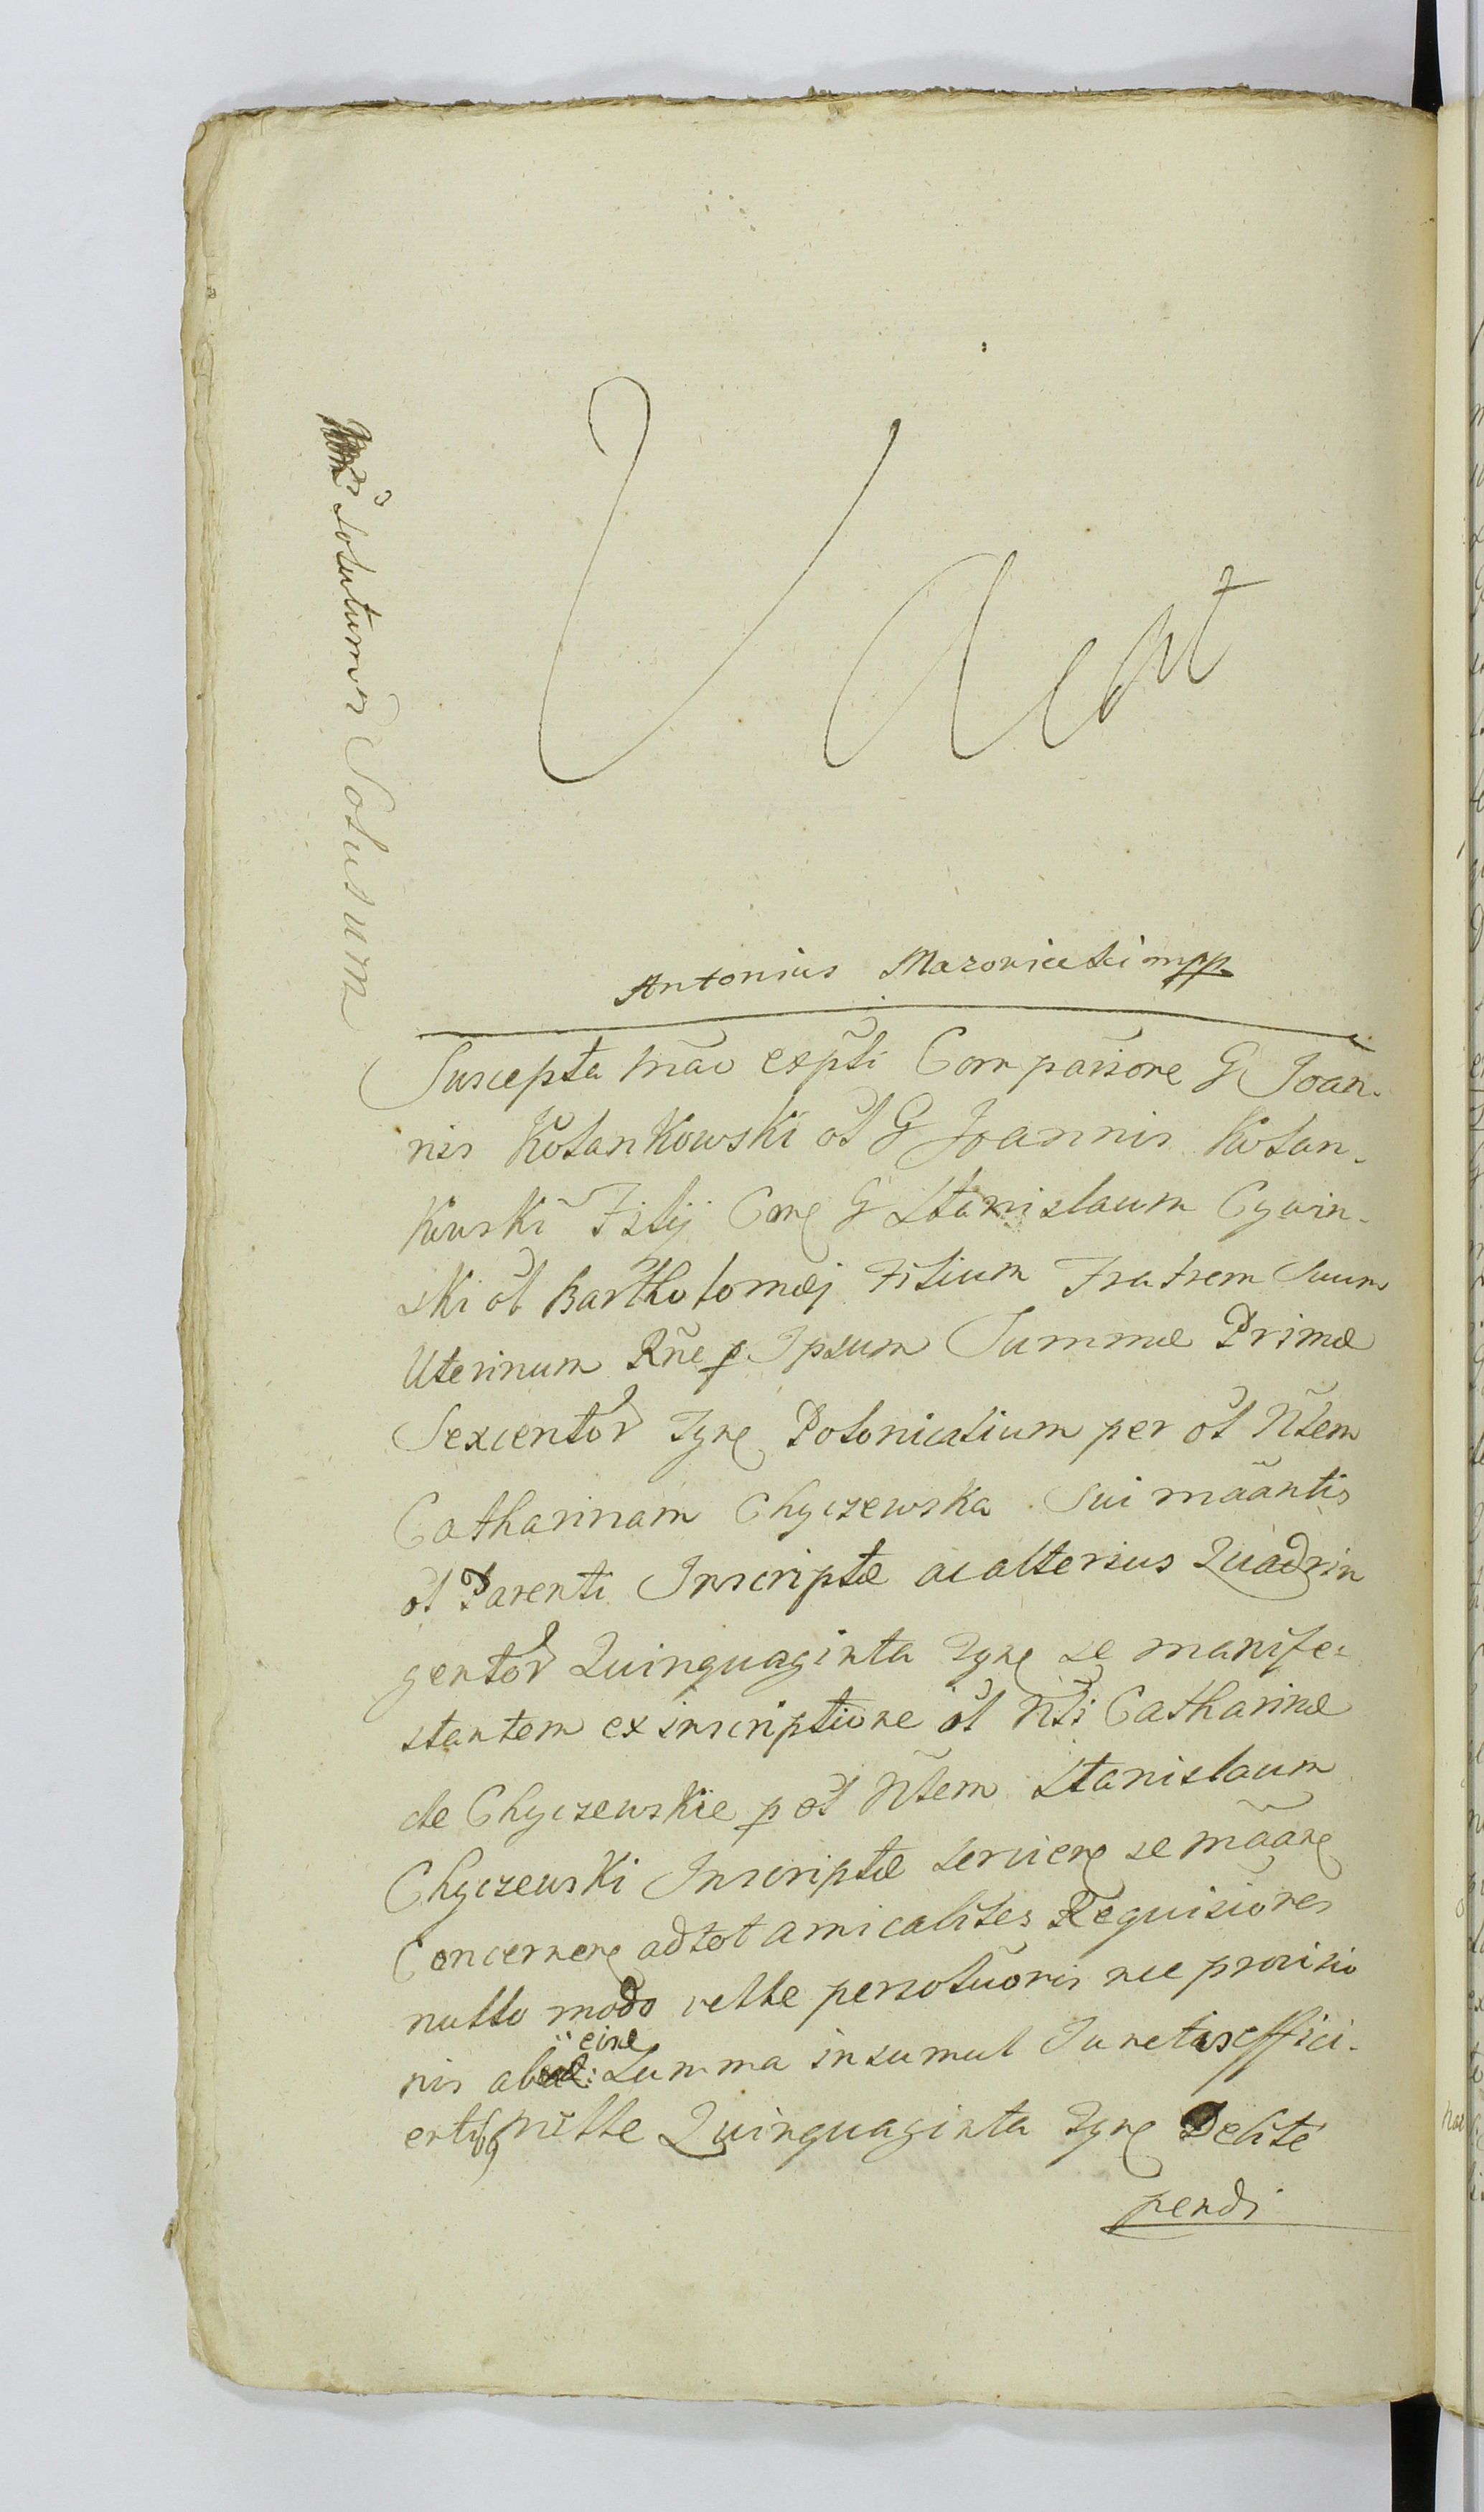 Vacat
solutum Solutum
Antonius Mazowiecki mpp
Suscepta expti Comparione G Joan-
nis Kolankowski ol G Joannis Kolan-
kowski Filij G Stanislaum Cywin-
ski ol Bartholomæj Filium Fratrem Suum
Uterinum Rne p Ipsum Summæ Primæ
Sexcentor Polonicalium per ol Nlem
Catharinam Chyczewska Sui mãantis
ol Parenti Inscriptæ ac alterius Quadrin
gentor Quinquaginta se manife-
stantem ex inscriptione ol Catharinæ
de Chyczewskie p ol Nlem Stanislaum
Chyczewski Inscriptæ serviere se
Concernere ad tot amicalites Requisiões
nullo modo velle nec provisio
nis ab eine Summa insumul Junctis effici-
entibq mille Quinquaginta Delite
pendi